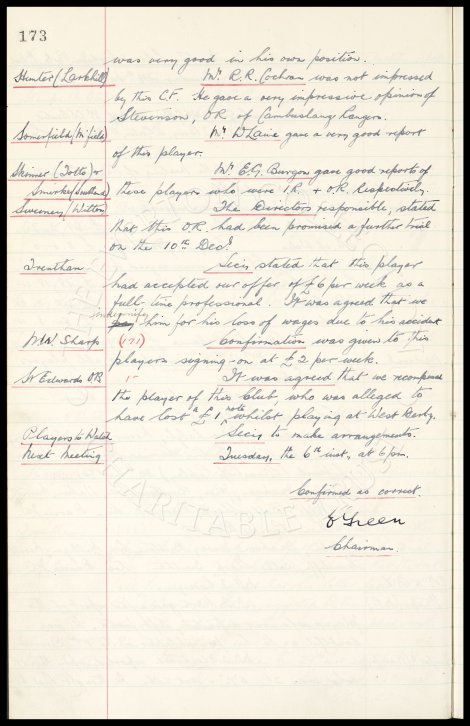 173
was very good in his own position.
Hunter (Larkhill) Mr. R.R. Cochran was not impressed
by this C.F. He gave a very impressive opinion of
Stevenson, O.R. of Cambuslang Rangers.
Somerfield (M'field) Mr. W Laine gave a very good report
of this player.
Skinner (Totts) or Mr. E.G. Burgon gave good reports of
these players who were I.R. & O.R. Respectively.
Sweeney (Witton) The Directors responsible, stated
that this O.R. had been promised a further trial
on the 10th Decr.
Trenthan Secy stated that this player
had accepted our offer of £6 per week as a
full-time professional. It was agreed that we
indemnify him for his loss of wages due to his accident
Sharps (171) Confirmation was given to this
players signing-on at £2 per week.
Edwards It was agreed that we recompense
the player of this Club, who was alleged to
have lost a £1 note whilst playing at West
Players to Watch Secy to make arrangements.
Next Meeting Tuesday, the 6th inst., at 6 pm.
Confirmed as correct.
E Green
Chairman.
CHARITABLE